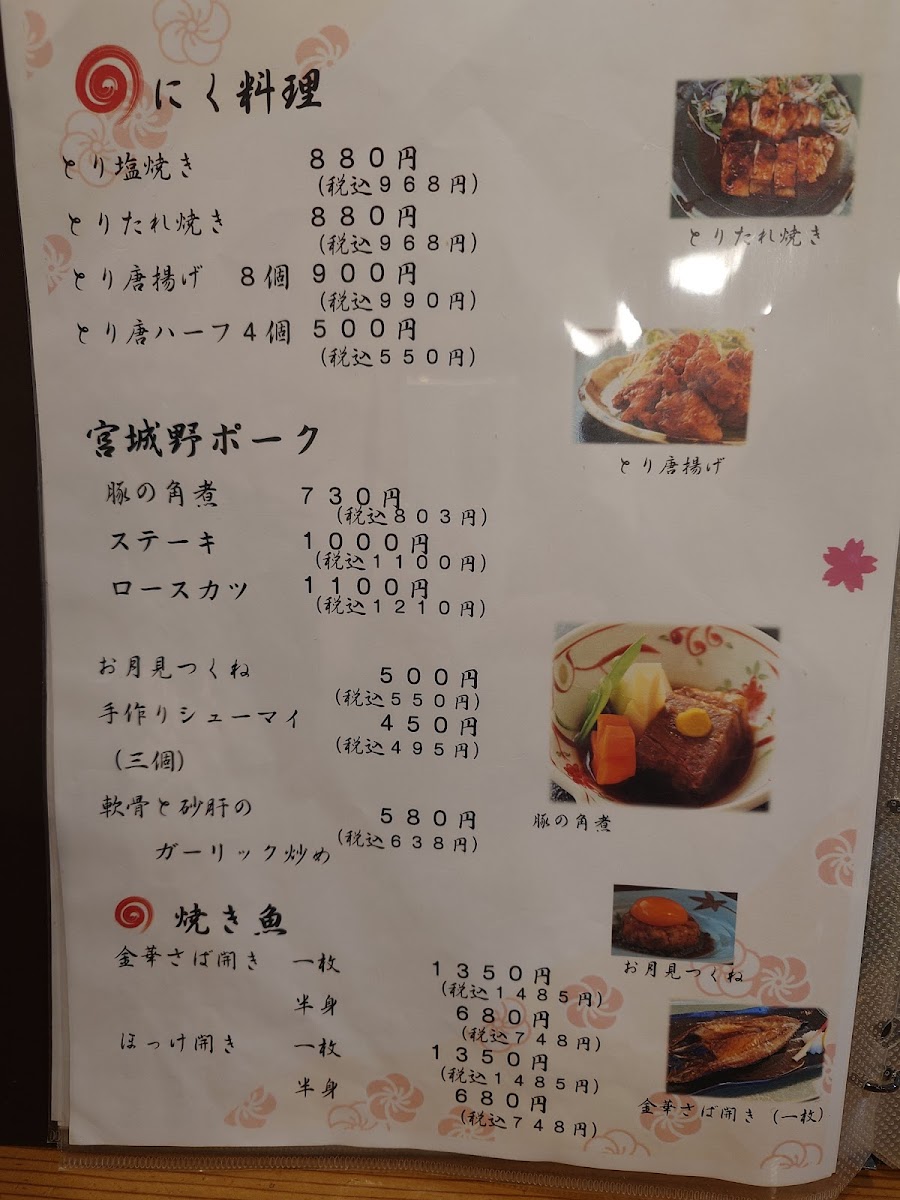 にく料理
とり塩焼き 880円
(税込968円)
とりたれ焼き 880円
(税込968円)
とり唐揚げ 8個 900円
(税込990円)
とり唐ハーフ4個 500円
(税込550円)
とりたれ焼き
とり唐揚げ
宮城野ポーク
豚の角煮 730円
(税込803円)
ステーキ 1000円
(税込1100円)
ロースカツ 1100円
(税込1210円)
お月見つくね 500円
(税込550円)
手作りシューマイ 450円
(税込495円)
(三個)
軟骨と砂肝の 580円
(税込638円)
ガーリック炒め
豚の角煮
焼き魚
金華さば開き 一枚 1350円
(税込1485円)
半身 680円
(税込748円)
ほっけ開き 一枚 1350円
(税込1485円)
半身 680円
(税込748円)
お月見つくね
金華さば開き (一枚)